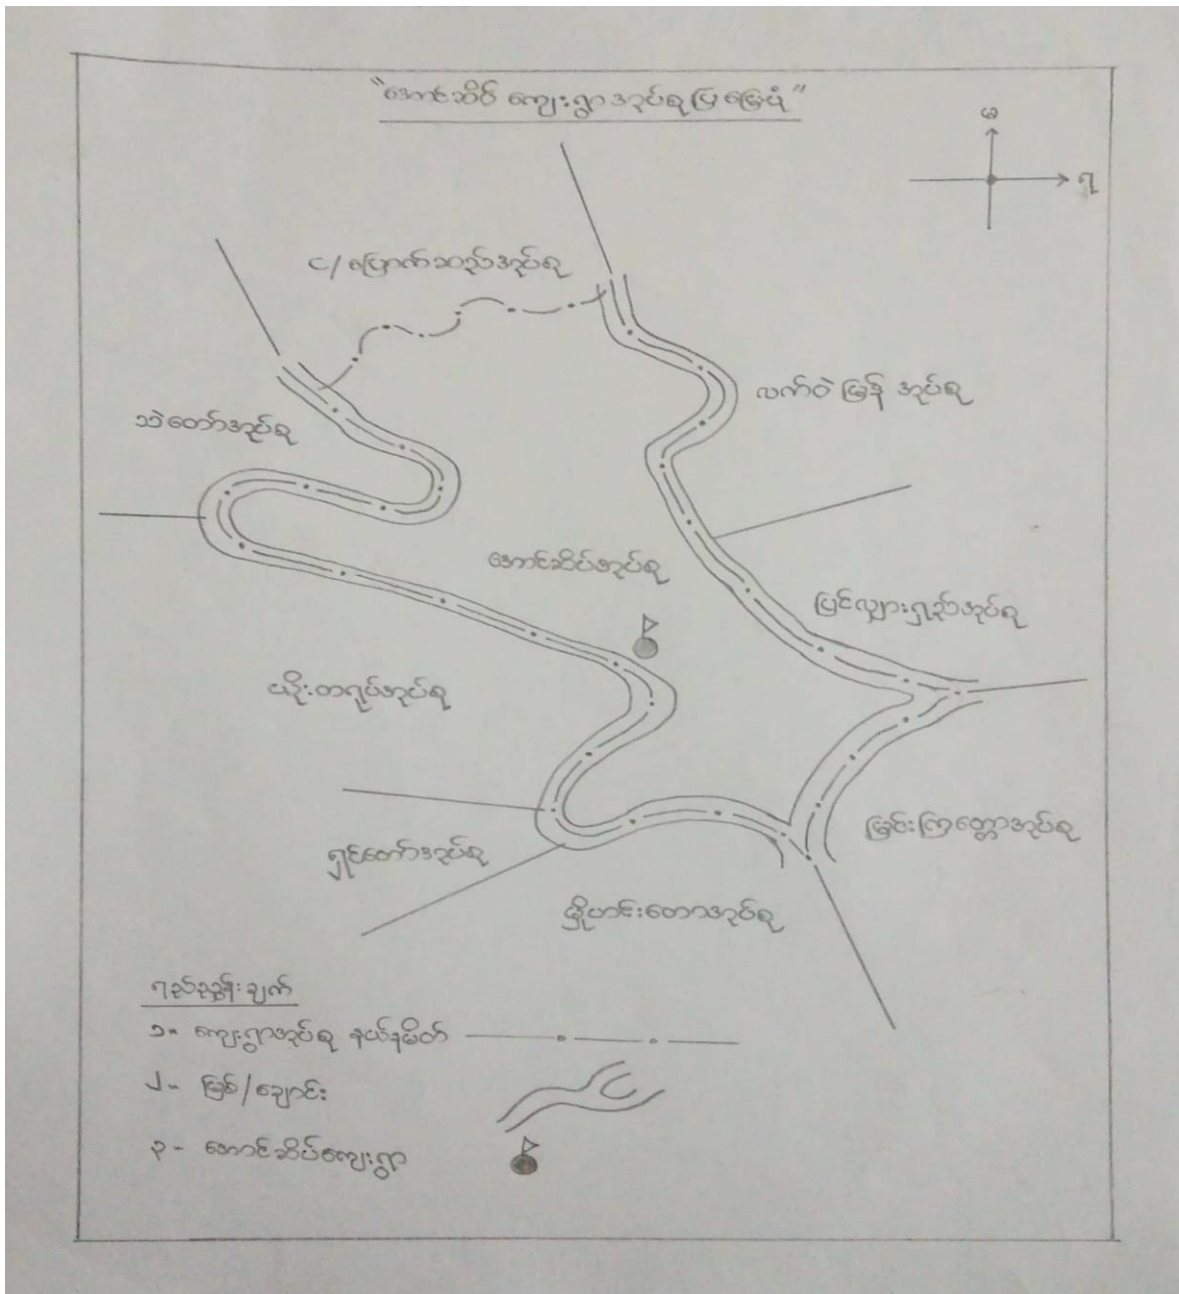 "အောင်ဆိပ် ကျေးရွာအုပ်စုပြ မြေပုံ"
မ
ရှ
င/ပြောက်ဆည်အုပ်စု
လက်ဝဲမြန် အုပ်စု
သဲတော်အုပ်စု
အောင်ဆိပ်အုပ်စု
ပြင်လျားရှည်အုပ်စု
ယိုးတရုပ်အုပ်စု
မြင်းကြတ္တောအုပ်စု
ရှင်တော်အုပ်စု
မှိုဟင်းတောအုပ်စု
ရည်ညွှန်းချက်
၁။ ကျေးရွာအုပ်စု နယ်နမိတ်
၂။ မြစ်/ချောင်း
၃- အောင်ဆိပ်ကျေးရွာ